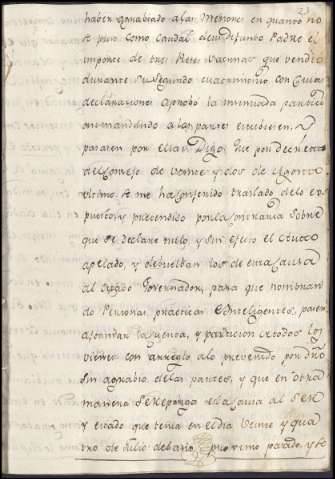 haber agrabiado a las Menores en quando no
se puso como caudal de su difunto Padre el
importe de las siete Bacunas que vendio
durante su segundo cuatrimonio con cuias
declaraciones aprobo la
mandando a las partes estubiesen, y
pasasen por ellas. Digo, que por decreto
del consejo de veinte y dos de Agosto
ultimo se me ha conferido traslado de lo es
puesto, y pretendido por la contraria sobre
que se declare nulo, y sin efecto el Auto
apelado, y debuelban los de esta causa
al Governador, para que nombran
do Personas practicas e Inteligentes, pasen
a formar la quenta, y particion de todos los
vienes con arreglo a lo prevenido por dro
sin agrabio de las partes, y que en otra
manera se reponga esta causa al ser
y estado que tenia en el dia veinte y qua
tro de Julio del año proximo pasado, y se